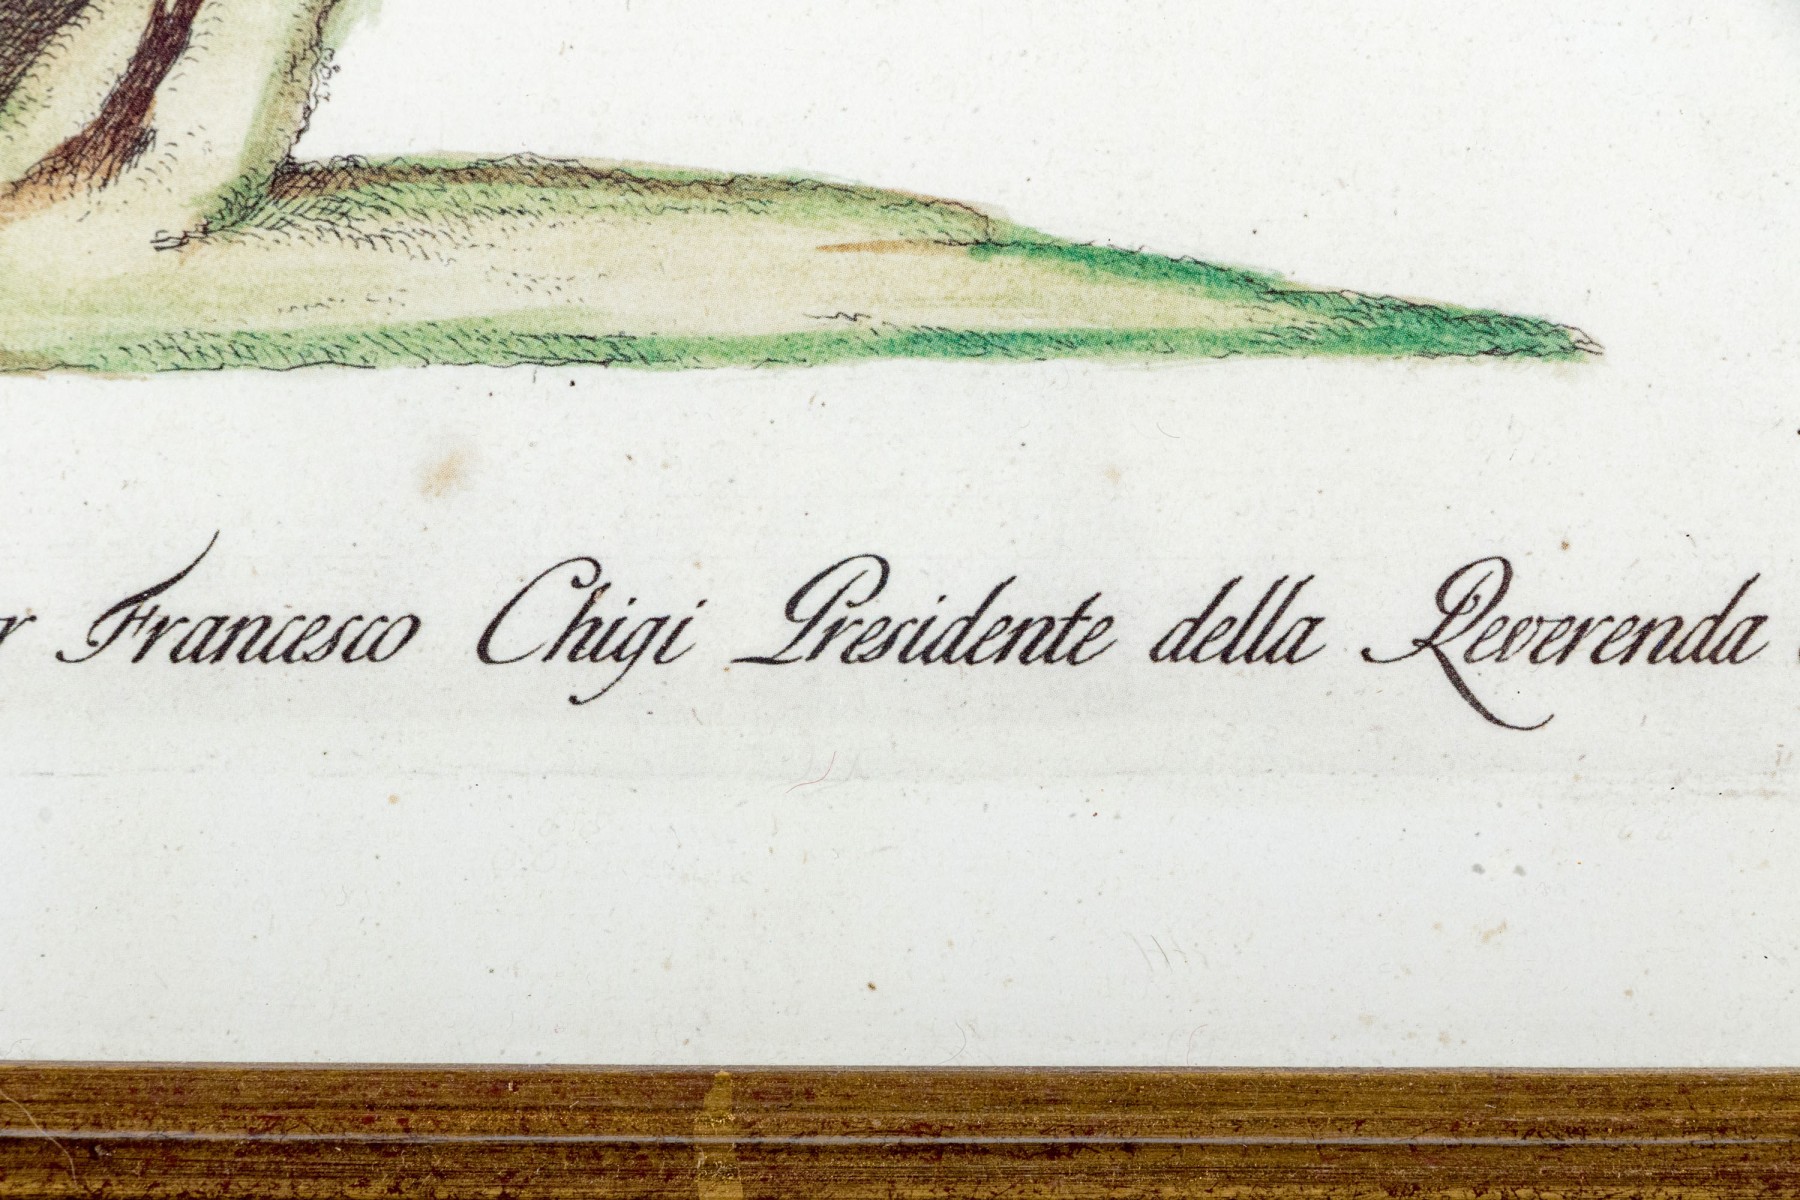 Francesco Chigi Presidente della Reverenda